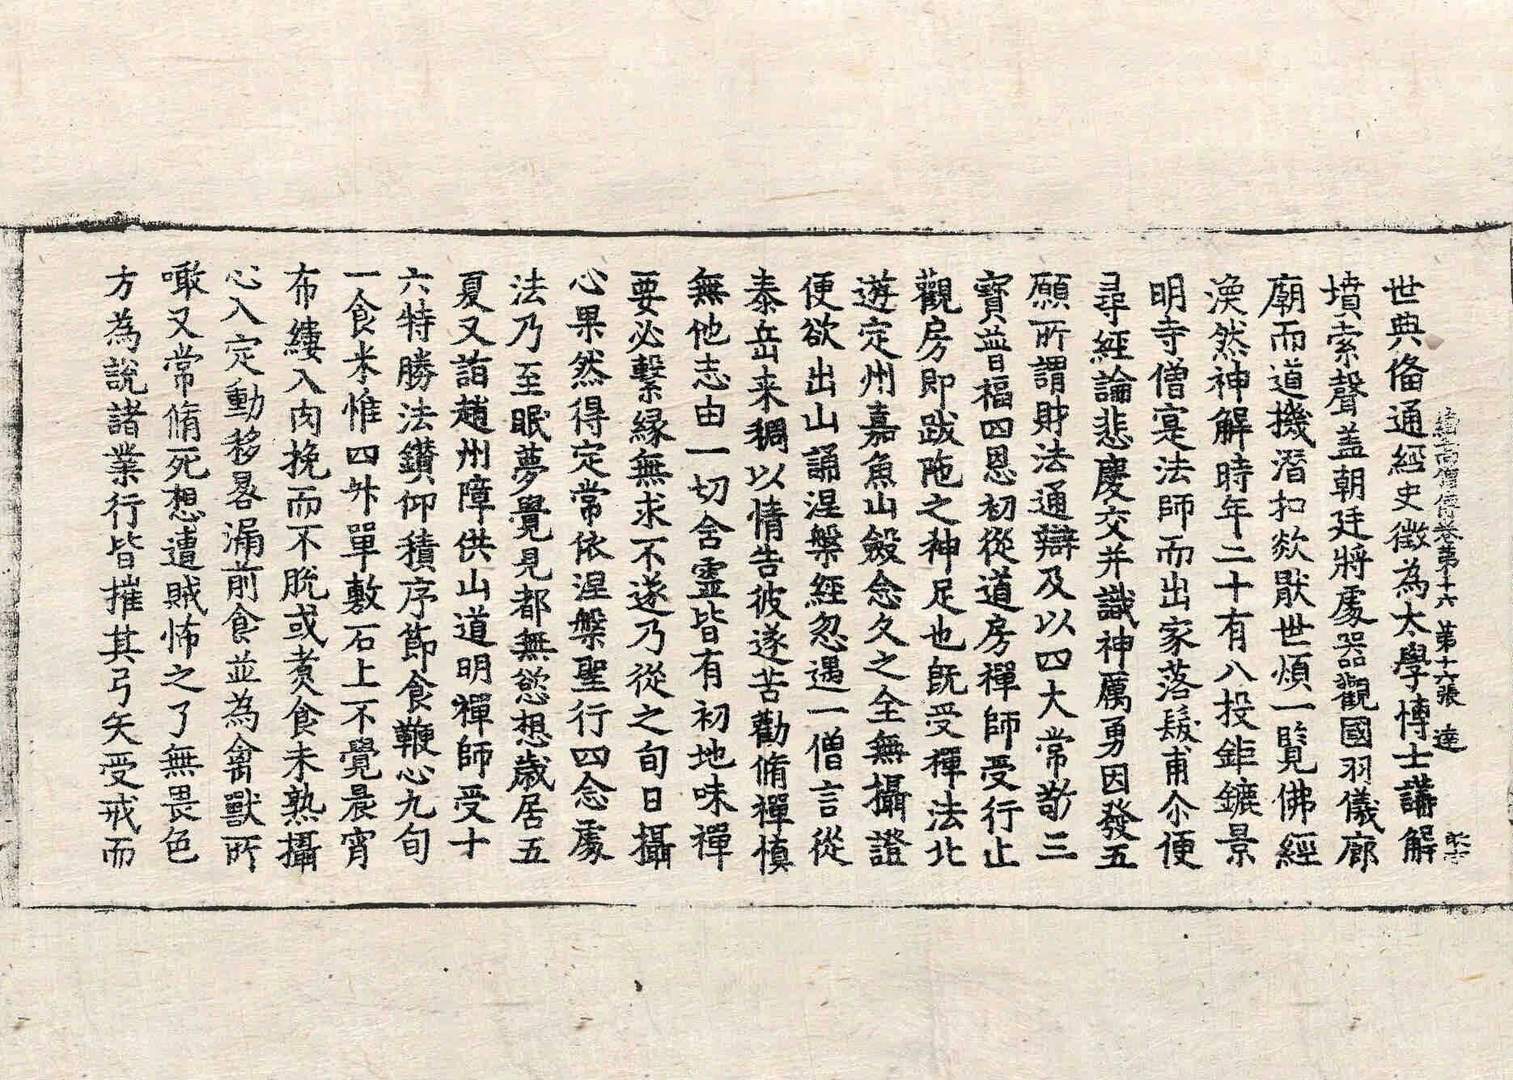 續高僧傳卷第十六 第十六張 達
世典俻通經史徵為太學博士講解
墳索聲盖朝廷將處器觀國羽儀廊
廟而道機潛扣欻猒世煩一覽佛經
渙然神解時年二十有八投鉅鑣景
明寺僧寔法師而出家落髮甫尒便
尋經論悲慶交并識神厲勇因發五
願所謂財法通辯及以四大常敬三
寶普福四恩初從道房禪師受行止
觀房即跋陁之神足也旣受禪法北
遊定州嘉魚山斂念久之全無攝證
便欲出山誦涅槃經忽遇一僧言從
泰岳来稠以情告彼遂苦勸脩禪慎
無他志由一切含靈皆有初地味禪
要必繫緣無求不遂乃從之旬日攝
心果然得定常依涅槃聖行四念處
法乃至眠夢覺見都無慾想歲居五
夏又詣趙州障供山道明禪師受十
六特勝法鑽仰積序節食鞭心九旬
一食米惟四升單敷石上不覺晨宵
布縷入肉挽而不脫或煑食未熟攝
心入定動移晷漏前食並為禽獸所
噉又常脩死想遭賊怖之了無畏色
方為說諸業行皆摧其弓矢受戒而